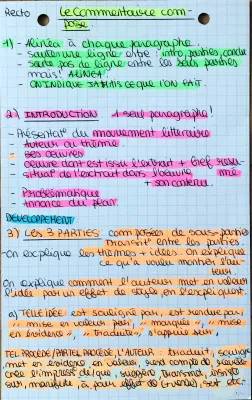 Recto Le Commentaire com-
posé
1) - Alinéa à chaque paragraphe.
- sauter une ligne entre : intro, parties, conclu
- saute pas de ligne entre les sous parties
mais ! ALINÉA !
- ON INDIQUE JAMAIS CE QUE L'ON FAIT.
2) INTRODUCTION 1 seul paragraphe!
- Présentat° du mouvement littéraire
- Auteur du thème.
- ses oeuvres
- oeuvre dont est issu l'extrait + bref résu-
- situat° de l'extrait dans l'oeuvre mé
+ son contenu.
- Problématique
- Annonce du plan.
DÉVELOPPEMENT
3) LES 3 PARTIES composées de sous-parties
Transit° entre les parties
- On explique les thèmes + idées. On explique
ce qu'a voulu montrer l'au-
teur.
On explique comment l'auteur met en valeur
l'idée par un effet de style, en l'expliquant.
a) TELLE IDÉE est souligné par, est rendue par
" mise en valeur par, " marquée ", " mise
en évidence ", " traduite ", s'appuie sur
TEL PROCÉDÉ / PAR TEL PROCÉDÉ, L'AUTEUR traduit, souligne
met en évidence, en valeur, rend compte de, révèle
crée l'impress° de/que, suggère, transmet, insiste
sur, manifeste, a pour effet de (+ verbe), sert etc.